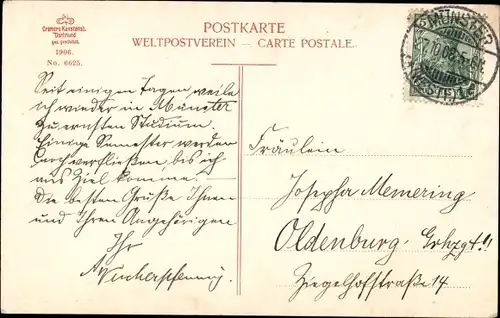 Cramers Kunstanst.
Dortmund
ges. geschützt.
1906.
No. 6625.
POSTKARTE
WELTPOSTVEREIN – CARTE POSTALE.
MÜNSTER
Seit einigen Tagen weile
ich wieder in Münster
zu ernsten Studium.
Einige Semester werden
noch verfließen bis ich
ans Ziel komme.
Die besten Grüße Ihnen
und Ihren Angehörigen
Ihr
Fräulein
Josepha Memering
Oldenburg. Grhzgt.
Ziegelhofstraße 14